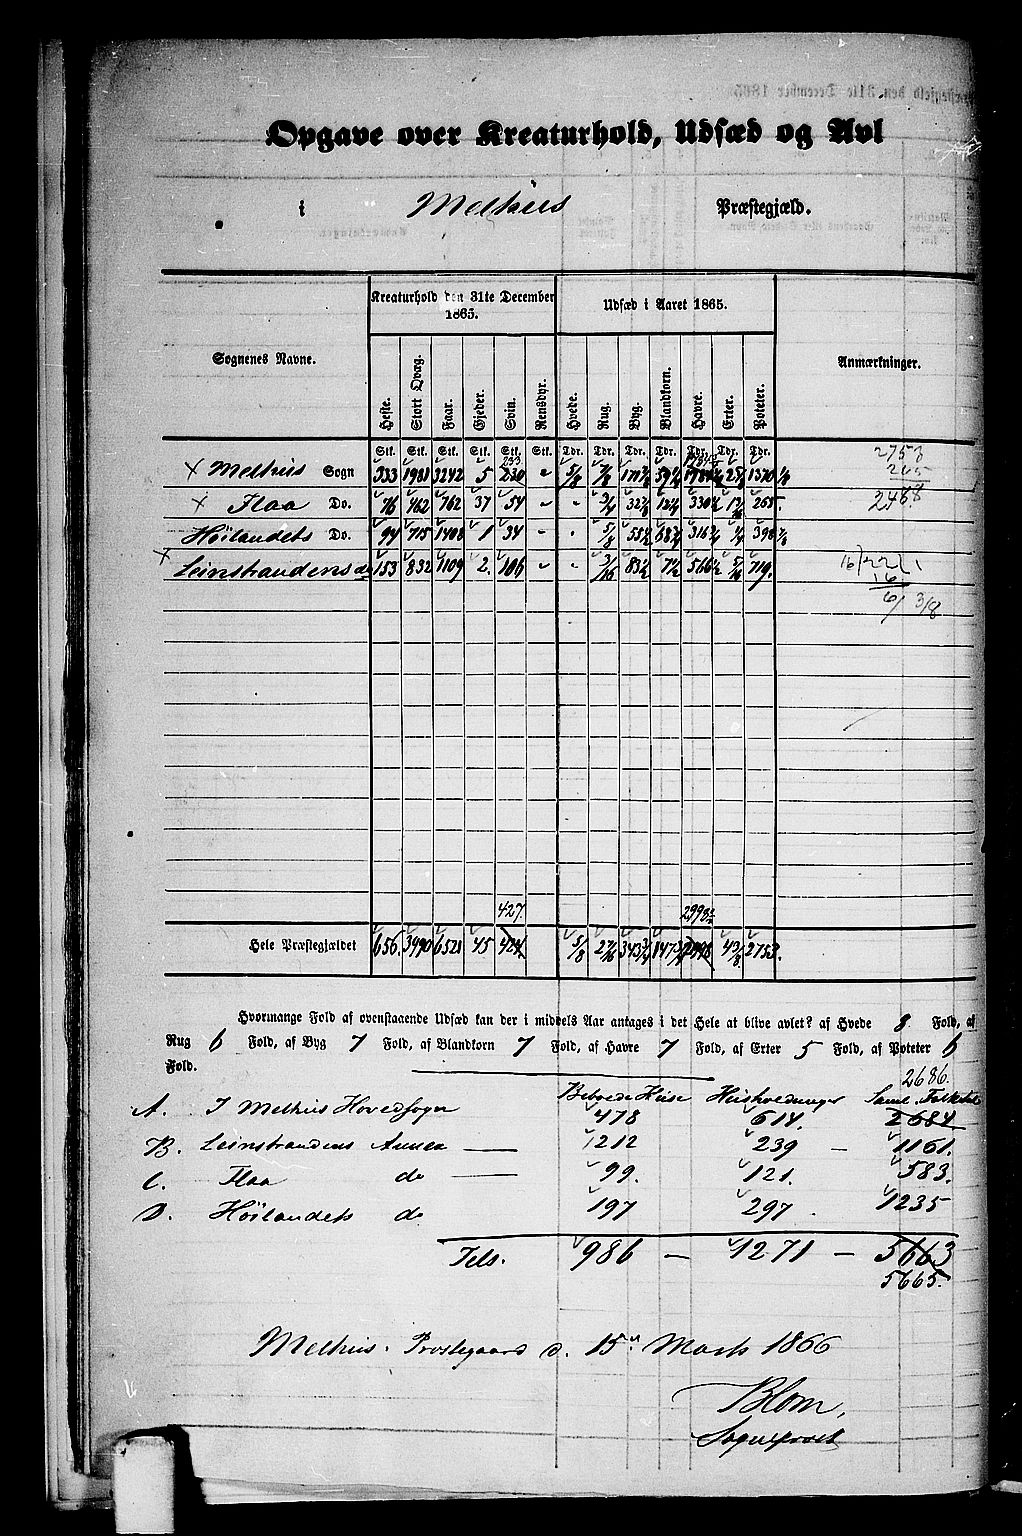 Opgave over Kreaturhold, Udsæd og Avl
i Melhus Præstegjæld.
Kreaturhold den 31te December 1865. Udsæd i Aaret 1865.
Sognenes Navne. Heste. Stort Qvæg. Faar. Gjeder. Svin. Rensdyr. Hvede. Rug. Byg. Blandkorn. Havre. Erter. Poteter. Anmærkninger.
Stk. Stk. Stk. Stk. Stk. Stk. Tdr. Tdr. Tdr. Tdr. Tdr. Tdr. Tdr.
233 2753
× Melhus Sogn 333 1981 3242 5 230 " 5/8 7/8 1370 1/8 265
× Flaa Do. 76 462 762 37 54 - " 3/4 265. 2488
Høilandets Do. 94 715 1408 1 34 - " 5/8 55 1/2 68 3/4 316 3/4 1/4 398 7/8
× Leinstrandens do 153 832 1109 2. 106 - " 3/16 83 1/2 7 1/2 566 1/2 5/16 719.
16
6/ 3/8
427.
Hele Præstegjældet 656. 3990 6521 45 424 5/8 2 7/16 343 3/4 147 3/4 4 3/8 2753.
Hvormange Fold af ovenstaaende Udsæd kan der i middels Aar antages i det Hele at blive avlet? af Hvede 8 Fold, af
Rug 6 Fold, af Byg 7 Fold, af Blandkorn 7 Fold, af Havre 7 Fold, af Erter 5 Fold, af Poteter 6
Fold.
2686.
Beboede Huse Huusholdninger Saml. Folketal
A. I Melhus Hovedsogn 478 614. 2684
B. Leinstrandens Annex — 212 239 — 1161.
C. Flaa do — 99. 121. 583.
D. Høilandets do 197 297. 1235
Tils. 986 — 1271 — 5663
5665.
Melhus Prostegaard d. 15de Marts 1866
Blom,
Sogneprest